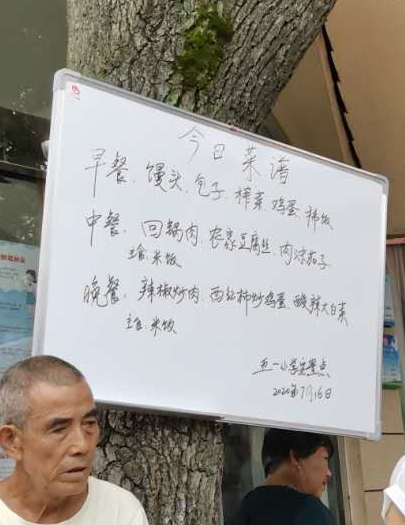 今日菜谱
早餐、馒头、包子、榨菜、鸡蛋、稀饭
中餐、回锅肉、农家豆腐丝、肉沫茄子
主食、米饭
晚餐、辣椒炒肉、西红柿炒鸡蛋、酸辣大白菜
主食、米饭
五一小学安置点
2020年7月16日